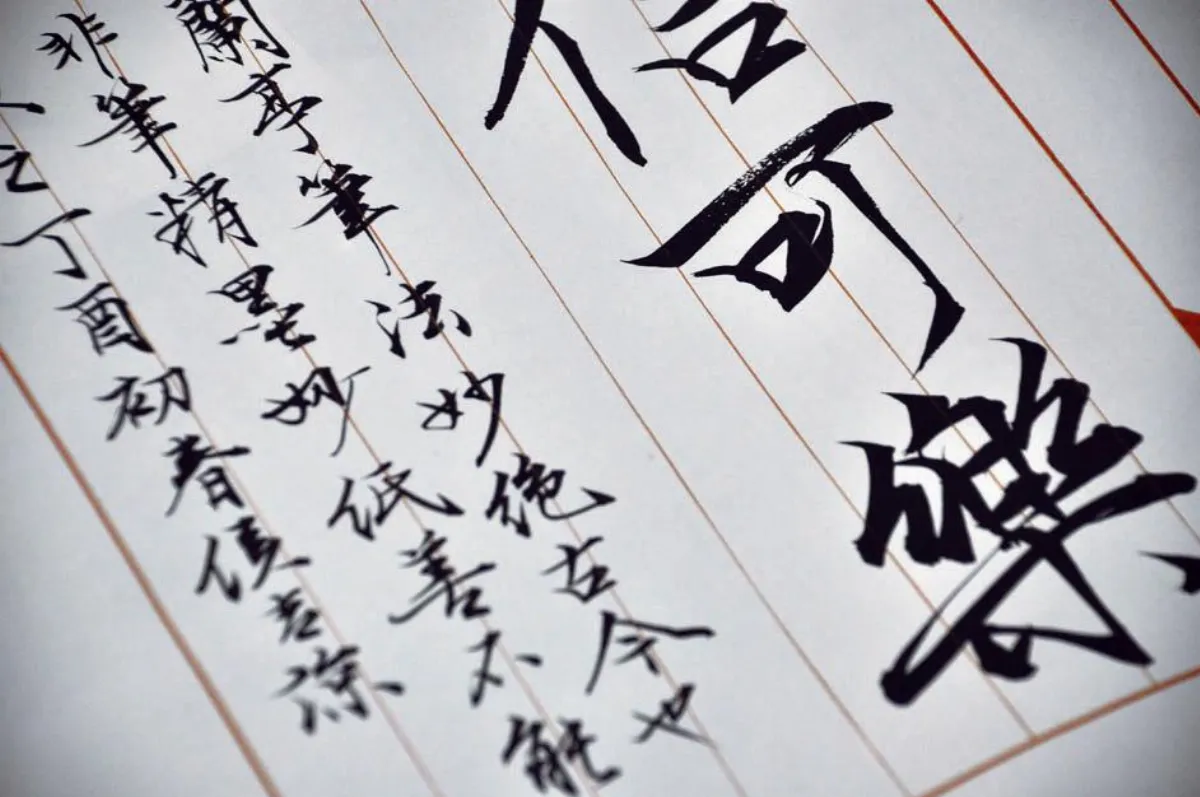 信可樂
蘭亭筆法妙絕古今也
非筆精墨妙紙善不能
之丁酉初春